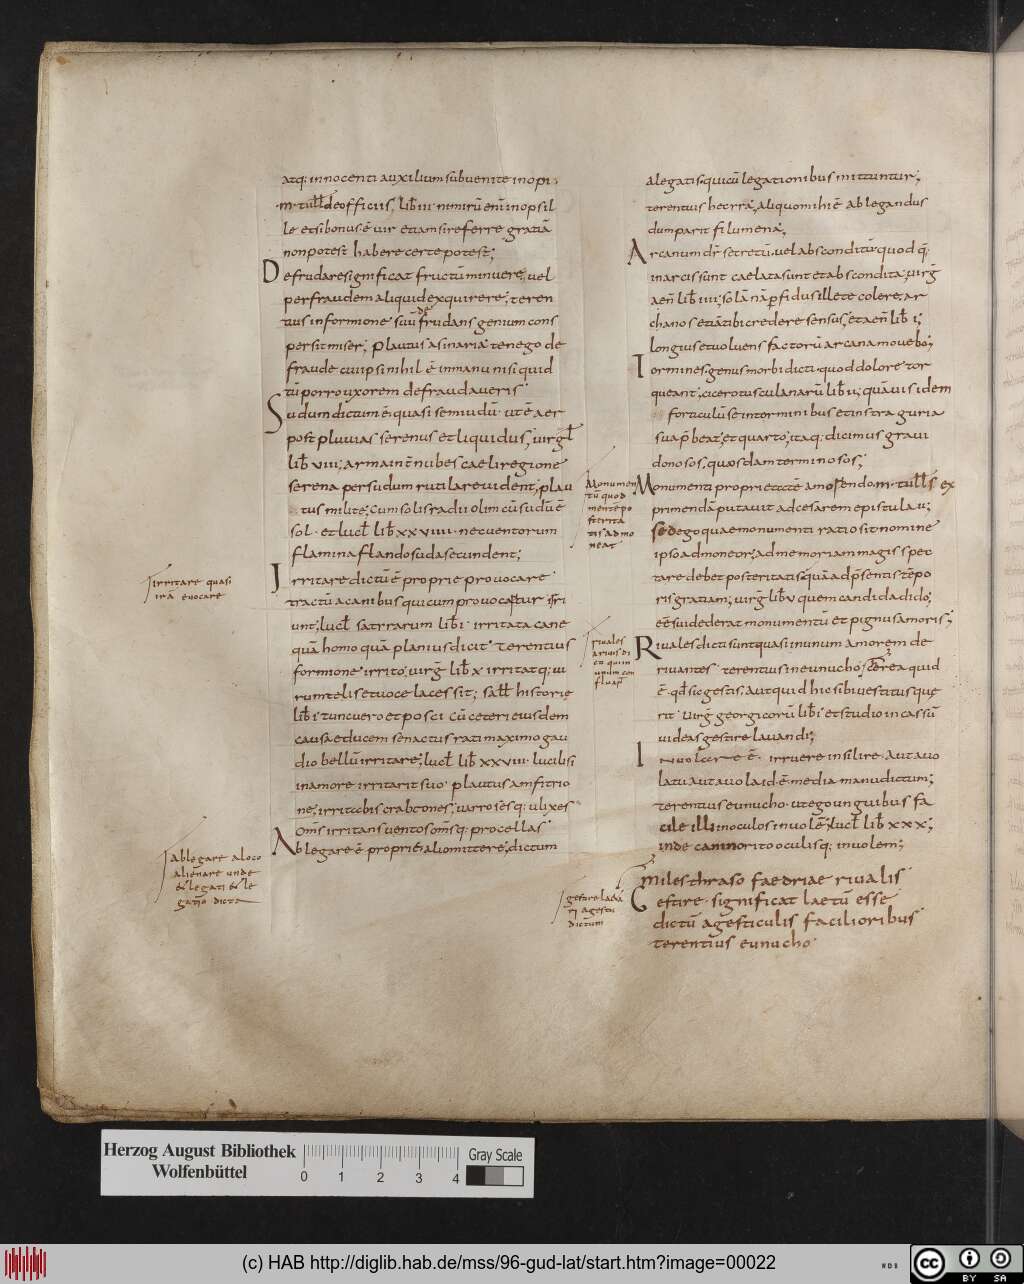 atq; innocenti auxilium subvenite inopi;
m· tull̄ de officiis, lib̄ iii· nimirū enī inopsil
le etsi bonus ē uir etiam si referre gratiā
non potest habere certe potest;
Defrudare significat fructū minuere, uel
per fraudem aliquid exquirere; teren
tius in formione suū de frudans genium cons
persit miser; plautus asinaria tenego de
fraude cuipsi nihil ē in manu nisi quid
tū porro uxorem defraudaueris
Sudum dictum ē quasi semiudū· ut ē aer
post pluuias serenus et liquidus, uirgl̄
lib̄ viii; arma int̄ nubes caeli regione
serena per sudum rutilare uident; plau
tus milite; Cum solis radii olim cū sudū ē
sol· et lucl̄ lib̄ xxviiii· nec uentorum
flamina flando suda secundent;
Irritare dictū ē proprie prouocare
tractū a canibus qui cum prouocantur irri
unt; lucl̄ satrrarum lib̄ i· irritata cane
quā homo quā planius dicit· terentius
formione irrito; uirḡ lib̄ x irritatq; ui
rum telis et uoce lacessit; sall̄ historię
lib̄ i· tunc uero et posci cū ceteri eiusdem
causae ducem se nactus rati maximo gau
dio bellū irritare; lucl̄ lib̄ xxviii· lucilisi
in amore irritarit suo· plautus amfitrio
ne; irritabis crabrones; uarro ses q; ulixes
Om̄s irritans uentos om̄sq; procellas
Ablegare ē propriē alio mittere; dictum
irritare quasi
irā euocare
Ablegare a loco
alienare unde
& legati & le
gatio dicta
a legatis; qui cū legationibus mittuntur;
terentius hecyra; aliquo mihi ē ablegandus
dum parit filumena;
Arcanum dr̄ secretū uel absconditū quod q̄
in arcis sunt caelata sunt et abscondita; uirḡ
aen̄ lib̄ iiii; solā nā p̄fidus ille te colere; ar
chanos etiā tibi credere sensus; et aen̄ lib̄ i;
longius et uoluens factorū arcana mouebo;
Tormines genus morbi dictū quod dolore tor
queant; cicero tusculanarū lib̄ ii; quāuis idem
forticulū se in torminibus et in stranguria
sua p̄beat; et quarto; itaq; dicimus graui
donosos; quosdam terminosos;
Monumen
tū quod
mente po
sterita
tis admo
neat
Monumenti proprietate amouendo m· tull̄s ex
primendā putauit ad cesarem epistula ii;
sed ego quae monumenti ratio sit nomine
ipso admoneor; ad memoriam magis spec
tare debet posteritatis quā ad p̄sentis tēpo
ris gratiam; uirḡ lib̄ v quem candida dido;
esse sui dederat monumentū et pignus amoris;
riuales
a riuis di
cti qui in
unum con
fluant
Riuales dicti sunt quasi in unum amorem de
riuantes· terentius in eunucho;
ē· qd̄ sic gestis; Aut quid hic sibi uestitus que
rit· uirḡ georgicorū lib̄ i· et studio in cassū
uideas gestire lauandi;
Inuolare ē· irruere insilire· Aut a uo
latu aut a uola id ē media manu dictum;
terentius eunucho· ut ego unguibus fa
cile illi in oculos inuolē; lucl̄ lib̄ xxx;
inde canino ri to oculisq; inuolem;
miles thraso faedriae riualis
Gestire· significat laetū esse
dictū a gesticulis facilioribus
terentius eunucho·
gestire laeta
ri a gestu
dictum
Herzog August Bibliothek
Wolfenbüttel
0 1 2 3 4
Gray Scale
(c) HAB http://diglib.hab.de/mss/96-gud-lat/start.htm?image=00022
WDB
cc BY SA